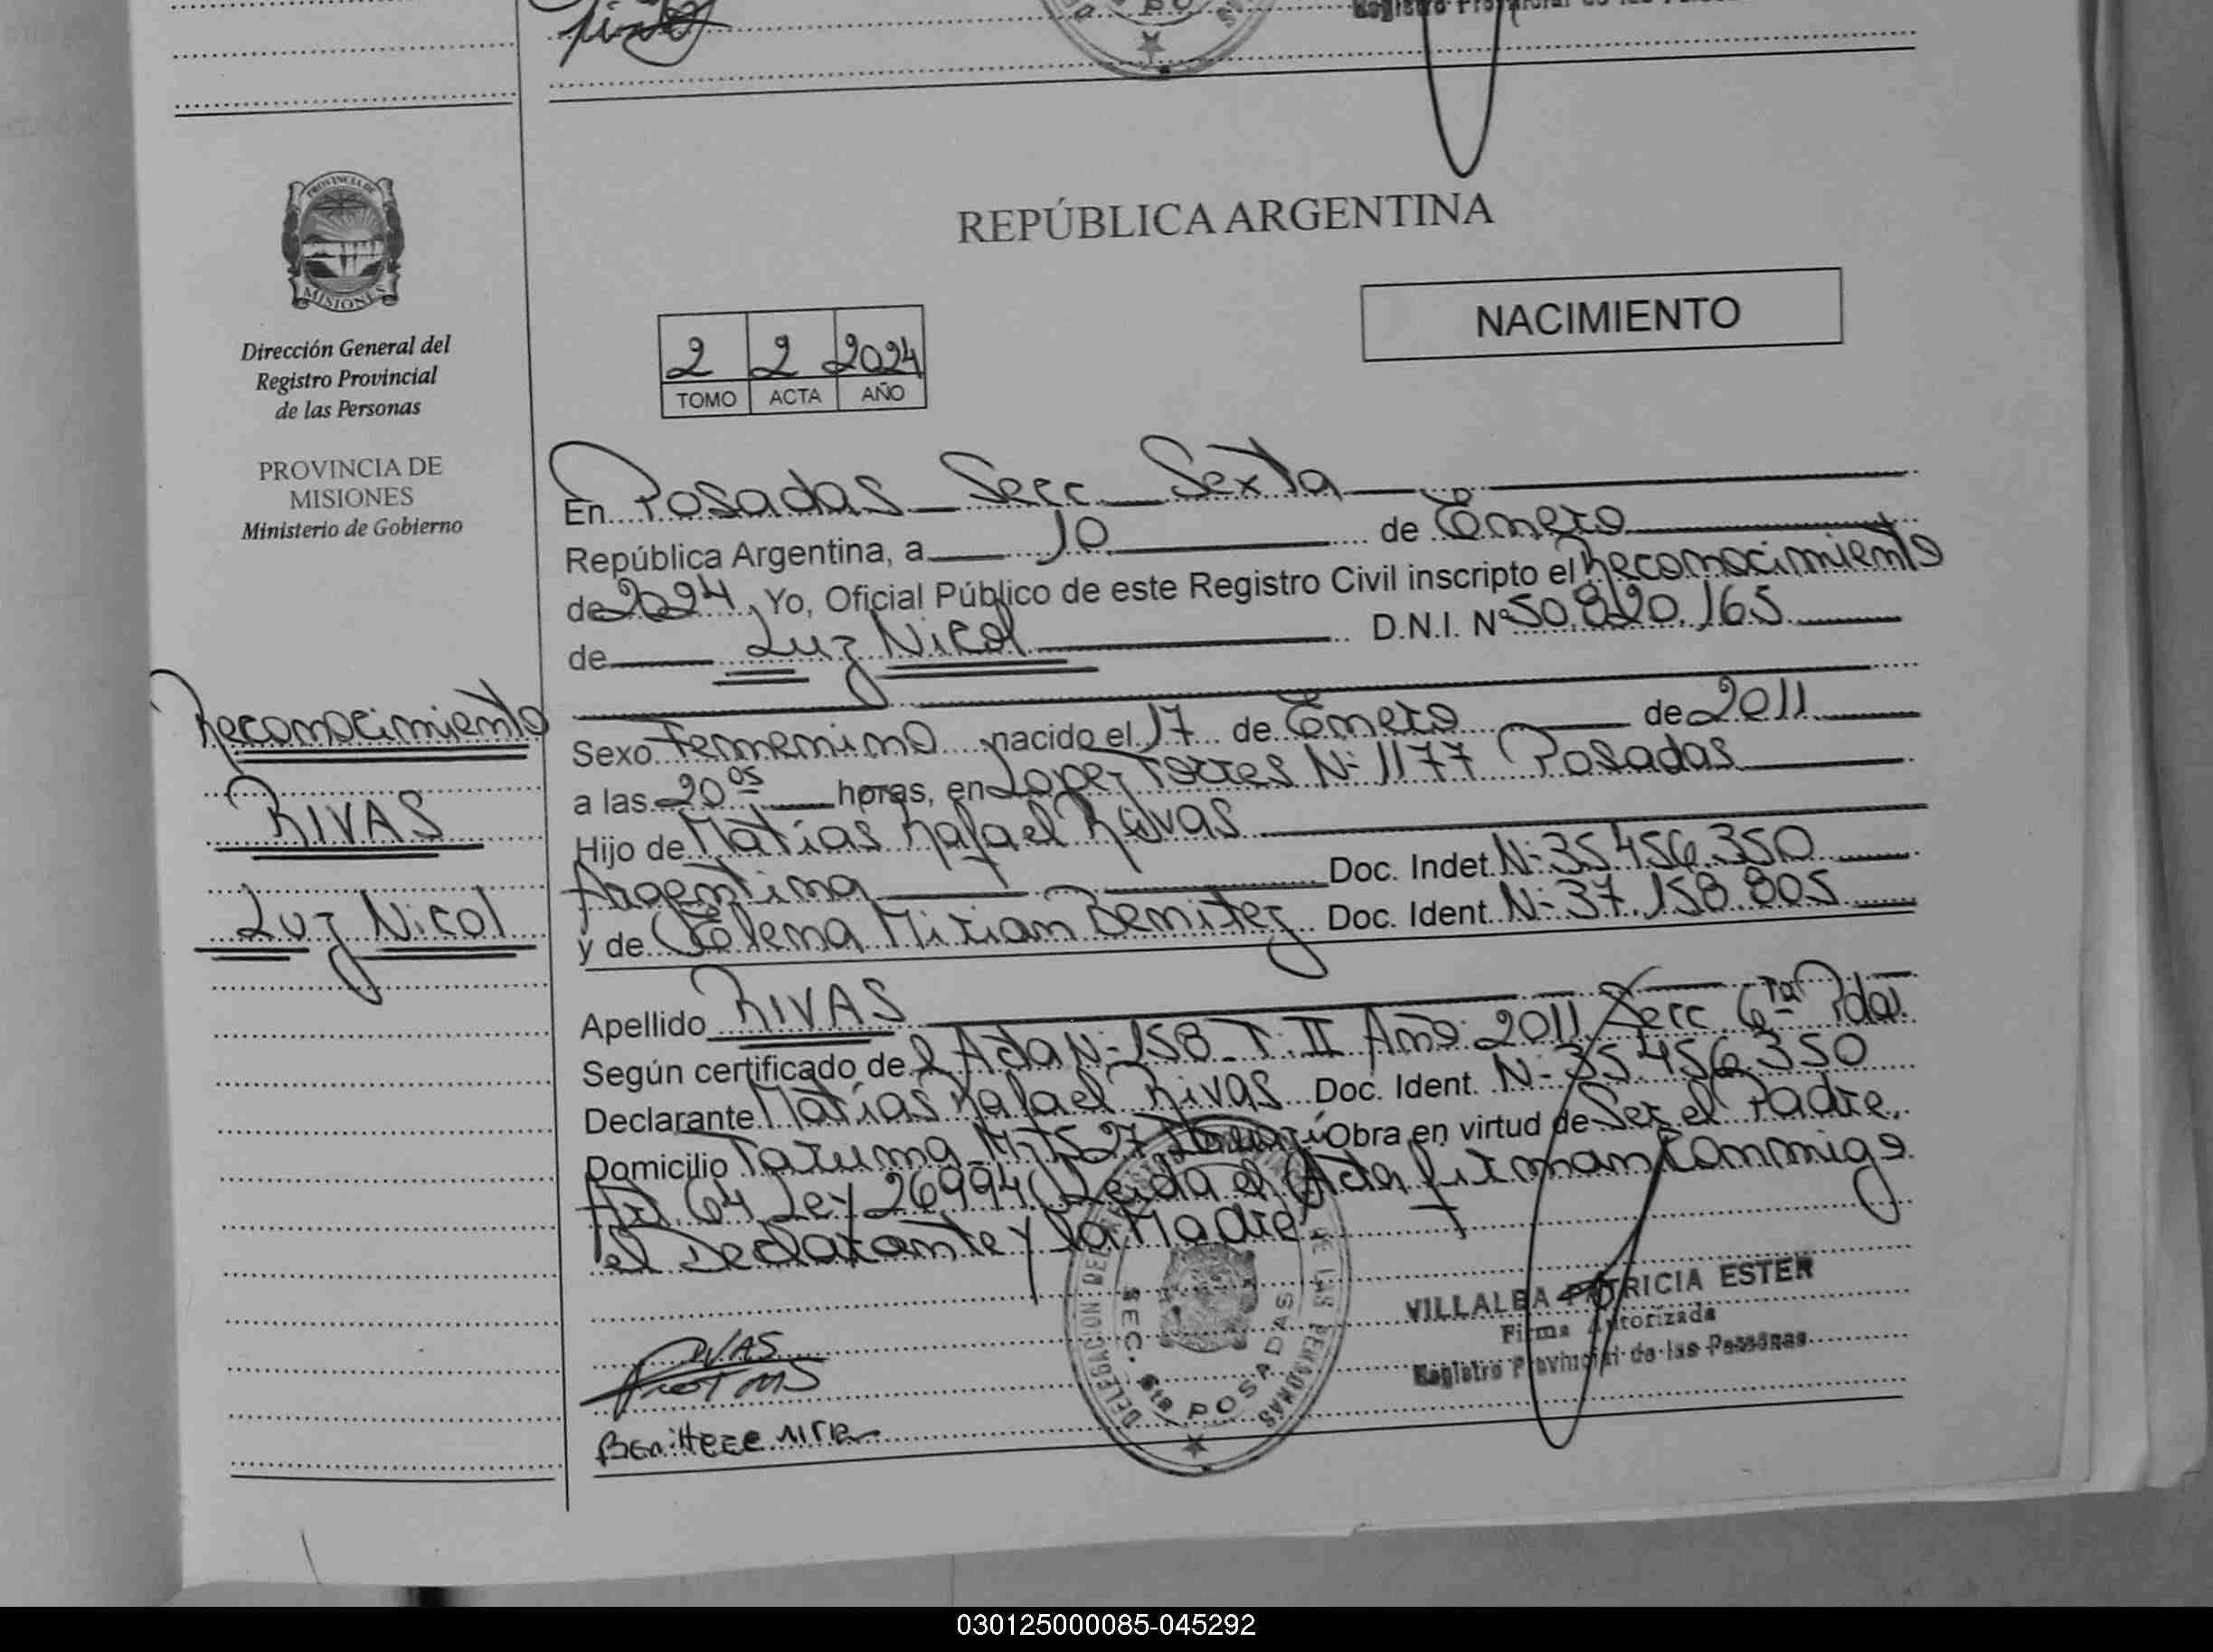 REPÚBLICA ARGENTINA
NACIMIENTO
2 2 2024
TOMO ACTA AÑO
PROVINCIA DE
MISIONES
Dirección General del
Registro Provincial
de las Personas
PROVINCIA DE
MISIONES
Ministerio de Gobierno
Reconocimiento
RIVAS
Luz Nicol
En Posadas Secc. Sexta
República Argentina, a 10 de Enero
de 2024, Yo, Oficial Público de este Registro Civil inscripto el Reconocimiento
de Luz Nicol D.N.I. Nº 50.820.165
Sexo Femenino nacido el 17 de Enero de 2011
a las 20 05 horas, en Lopez Torres Nº 1177 Posadas
Hijo de Matías Rafael Rivas
Argentina Doc. Indet. Nº 35.456.350
y de Elena Mirian Benitez Doc. Ident. Nº 37.158.805
Apellido RIVAS
Según certificado de l Acta Nº 158 T. II Año: 2011 Secc. 6ta Pdas.
Declarante Matías Rafael Rivas Doc. Ident. Nº 35456350
Domicilio Taruma Nº 7527 Obra en virtud de Ser el Padre.
Art. 64 Ley 26.994. Leida el Acta firman conmigo
el Declarante y la Madre
RIVAS
DELEGACION DE LAS PERSONAS
SEC. 6ta POSADAS
VILLALBA PATRICIA ESTER
Firma Autorizada
Registro Provincial de las Personas
030125000085-045292